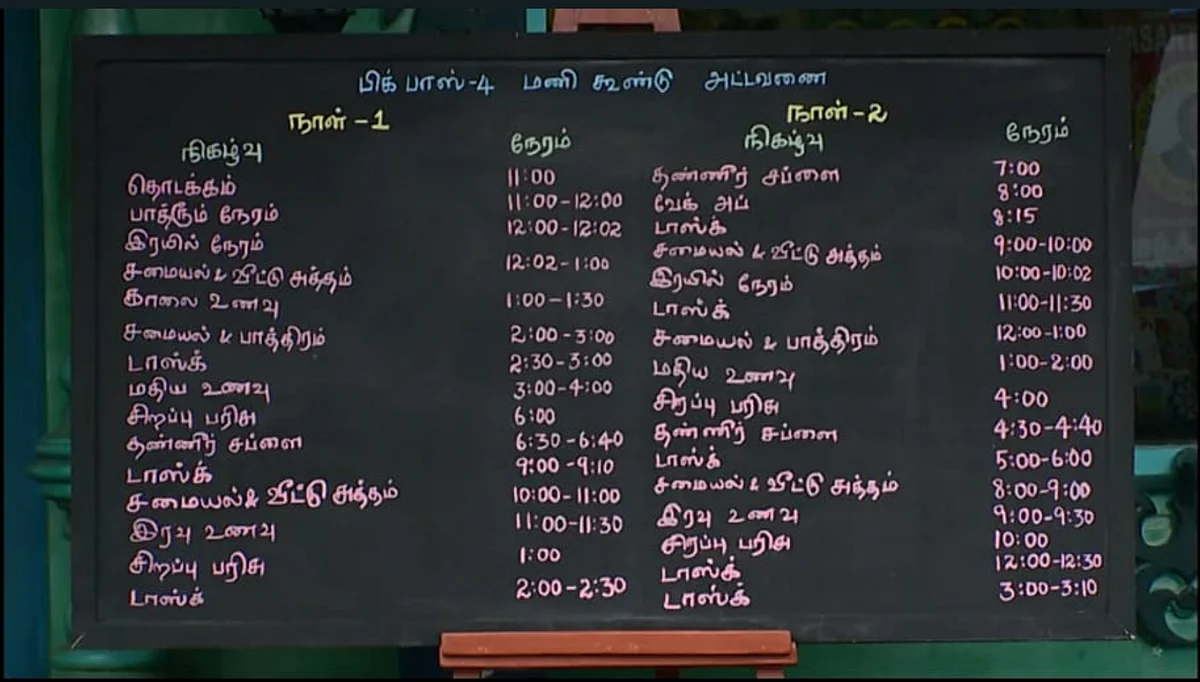 பிக் பாஸ்-4 மணி கூண்டு அட்டவணை
நாள் -1 நாள்-2
நிகழ்வு நேரம் நிகழ்வு நேரம்
தொடக்கம் 11:00 தண்ணீர் சப்ளை 7:00
பாத்ரூம் நேரம் 11:00-12:00 வேக் அப் 8:00
இரயில் நேரம் 12:00-12:02 டாஸ்க் 8:15
சமையல் & வீட்டு சுத்தம் 12:02-1:00 சமையல் & வீட்டு சுத்தம் 9:00-10:00
காலை உணவு 1:00-1:30 இரயில் நேரம் 10:00-10:02
சமையல் & பாத்திரம் 2:00-3:00 டாஸ்க் 11:00-11:30
டாஸ்க் 2:30-3:00 சமையல் & பாத்திரம் 12:00-1:00
மதிய உணவு 3:00-4:00 மதிய உணவு 1:00-2:00
சிறப்பு பரிசு 6:00 சிறப்பு பரிசு 4:00
தண்ணீர் சப்ளை 6:30-6:40 தண்ணீர் சப்ளை 4:30-4:40
டாஸ்க் 9:00-9:10 டாஸ்க் 5:00-6:00
சமையல் & வீட்டு சுத்தம் 10:00-11:00 சமையல் & வீட்டு சுத்தம் 8:00-9:00
இரவு உணவு 11:00-11:30 இரவு உணவு 9:00-9:30
சிறப்பு பரிசு 1:00 சிறப்பு பரிசு 10:00
டாஸ்க் 2:00-2:30 டாஸ்க் 12:00-12:30
டாஸ்க் 3:00-3:10